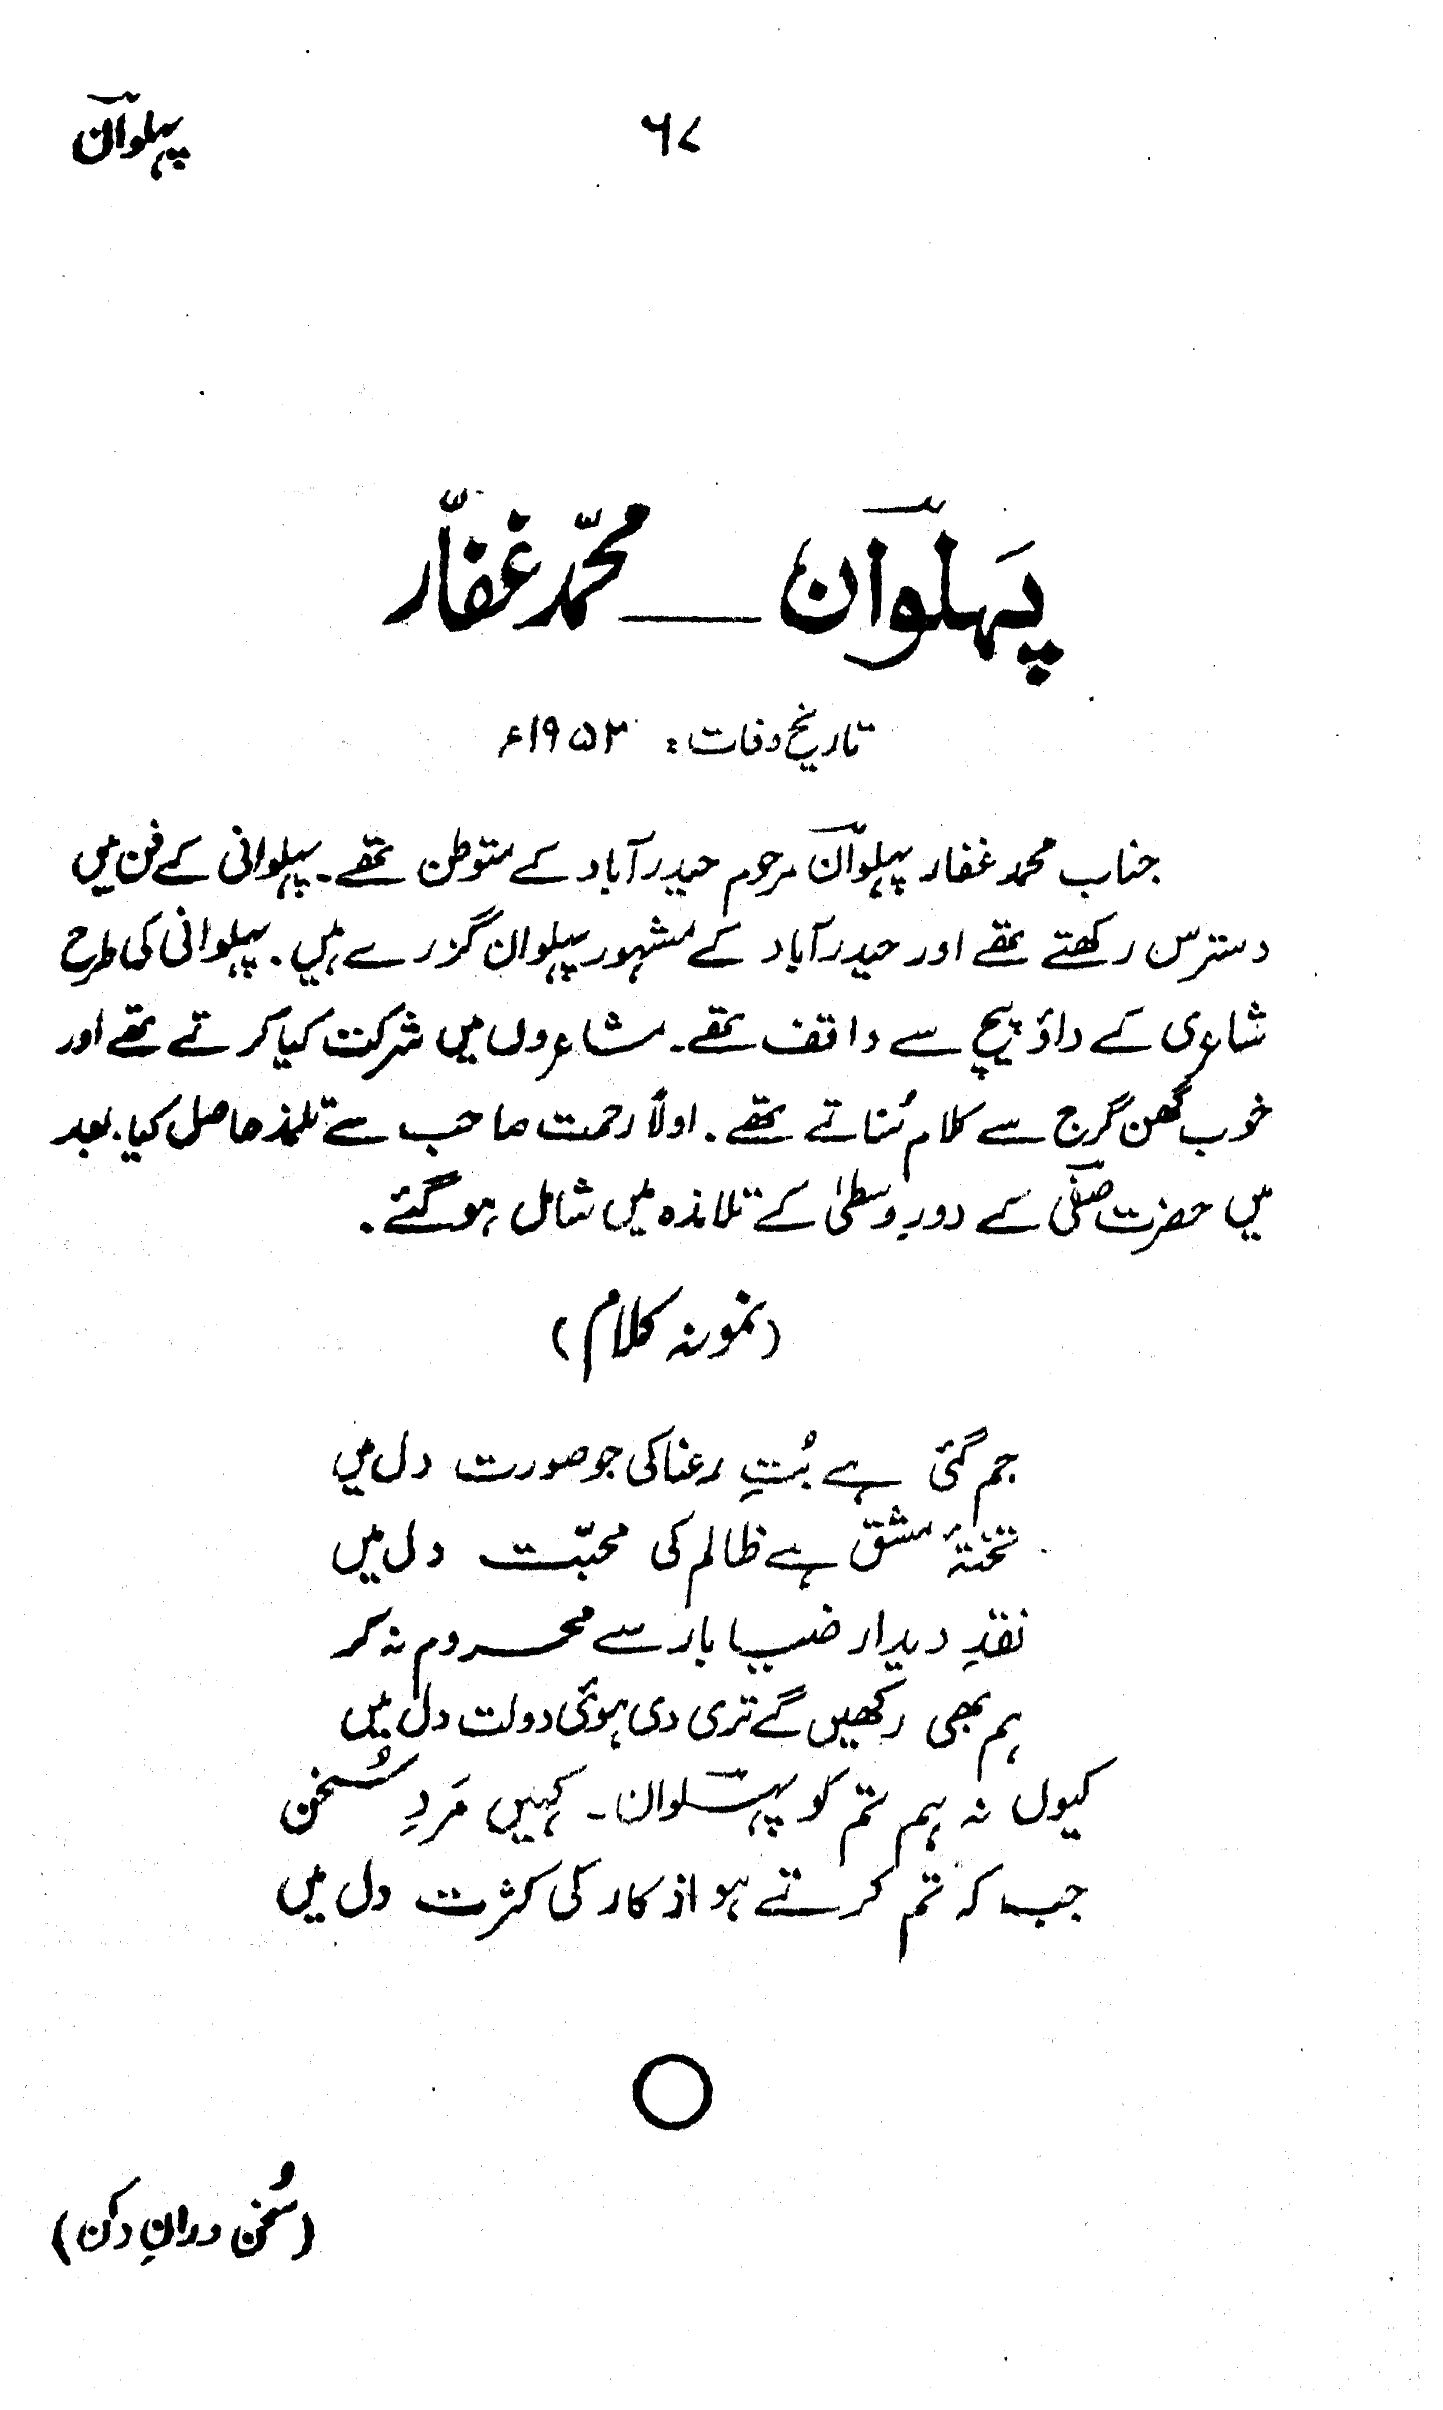 پہلوانؔ
۶۷
پہلوانؔ ـــ محمّد غفّار
تاریخ وفات: ۱۹۵۳ء
جناب محمد غفار پہلوانؔ مرحوم حیدرآباد کے متوطن تھے۔ پہلوانی کے فن میں
دسترس رکھتے تھے اور حیدرآباد کے مشہور پہلوان گزرے ہیں۔ پہلوانی کی طرح
شاعری کے داؤ پیچ سے واقف تھے۔ مشاعروں میں شرکت کیا کرتے تھے اور
خوب گھن گرج سے کلام سُناتے تھے۔ اولاً رحمت صاحب سے تلمذ حاصل کیا۔ بعد
میں حضرت صفیؔ کے دورِ وسطیٰ کے تلامذہ میں شامل ہوگئے۔
(نمونہ کلام)
جم گئی ہے بُتِ رعنا کی جو صورت دل میں
تختۂ مشق ہے ظالم کی محبّت دل میں
نقدِ دیدار ضیا بار سے محروم نہ کر
ہم بھی رکھیں گے تری دی ہوئی دولت دل میں
کیوں نہ ہم تم کو پہلوانؔ۔ کہیں مَردِ سُخن
جب کہ تم کرتے ہو اذکار کی کثرت دل میں
(سُخن ورانِ دکن)